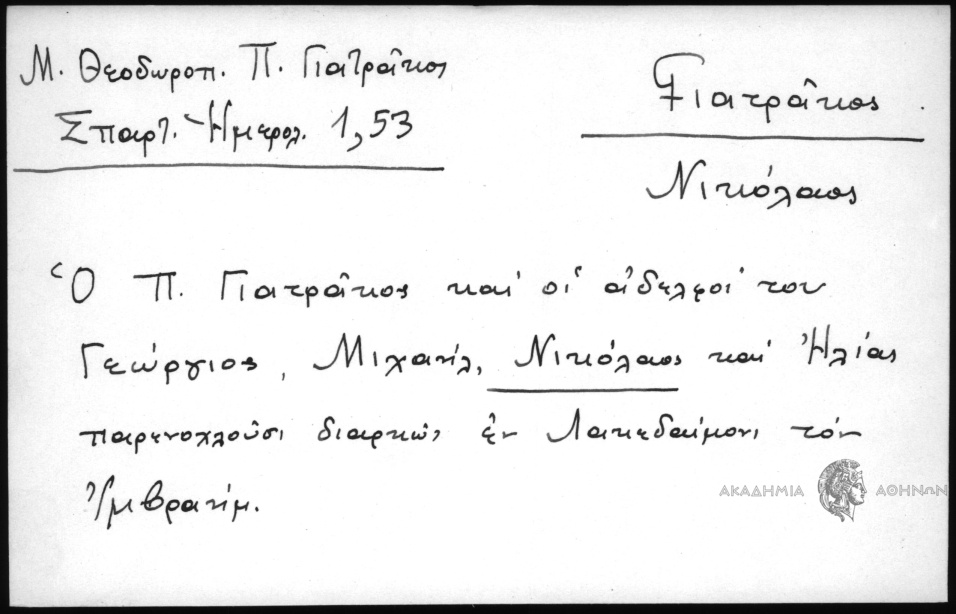 Μ. Θεοδωροπ. Π. Γιατρᾶκος
Σπαρτ. Ἡμερολ. 1,53
Γιατρᾶκος
Νικόλαος
Ὁ Π. Γιατρᾶκος καί οἱ ἀδελφοί του
Γεώργιος, Μιχαήλ, Νικόλαος καί Ἠλίας
παρενοχλοῦσι διαρκῶς ἐν Λακεδαίμονι τόν
Ἰμβραήμ.
ΑΚΑΔΗΜΙΑ ΑΘΗΝΩΝ